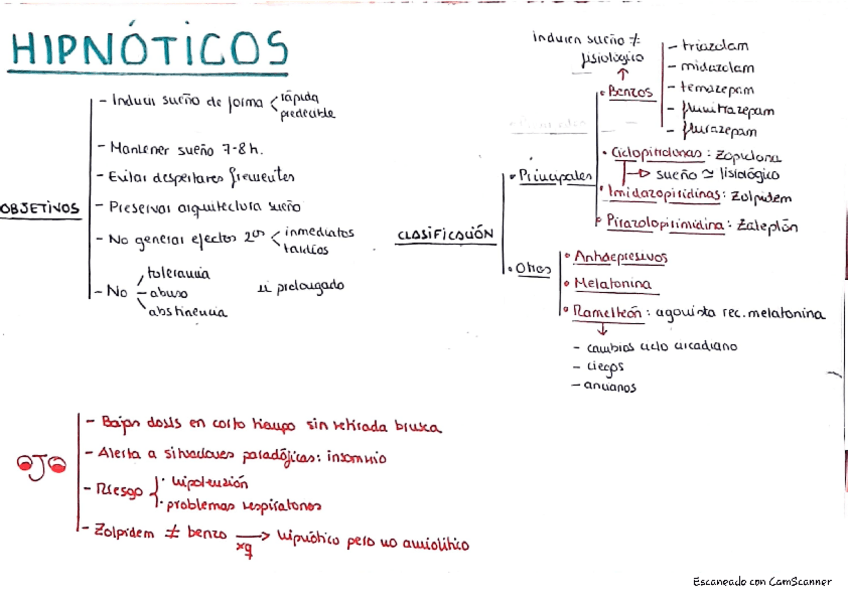 HIPNÓTICOS
OBJETIVOS
- Inducir sueño de forma < rápida
predecible
- Mantener sueño 7-8 h.
- Evitar despertares frecuentes
- Preservar arquitectura sueño
- No generar efectos 2ºs < inmediatos
tardíos
- No tolerancia
abuso
abstinencia
si prolongado
CLASIFICACIÓN
• Principales
inducen sueño ≠
fisiológico
↑
• Benzos
- triazolam
- midazolam
- temazepam
- flunitrazepam
- flurazepam
• Ciclopirrolonas: Zopiclona
→ sueño ≃ fisiológico
• Imidazopiridinas: Zolpidem
• Pirazolopirimidina: Zaleplón
• Otros
• Antidepresivos
• Melatonina
• Ramelteón: agonista rec. melatonina
↓
- cambios ciclo circadiano
- ciegos
- ancianos
OJO
- Bajas dosis en corto tiempo sin retirada brusca
- Alerta a situaciones paradójicas: insomnio
- Riesgo { · hipotensión
· problemas respiratorios
- Zolpidem ≠ benzo → xq hipnótico pero no ansiolítico
Escaneado con CamScanner